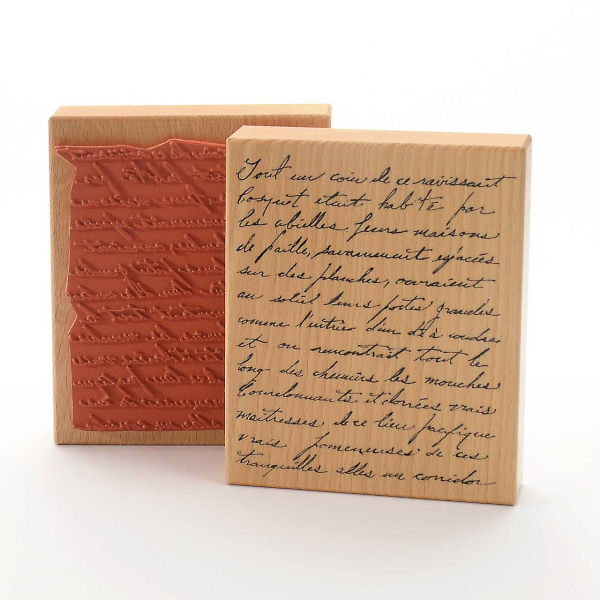 Tout un coin de ce ravissant
bosquet était habité par
les abeilles leurs maisons
de paille, savamment espacées
sur des planches, ouvraient
au soleil leurs portes grandes
comme l'entrée d'un dé à coudre
et on rencontrait tout le
long des chemins les mouches
bourdonnantes et dorées vrais
maîtresses de ce lieu pacifique
vrais promeneuses de ces
tranquilles allées un corridor